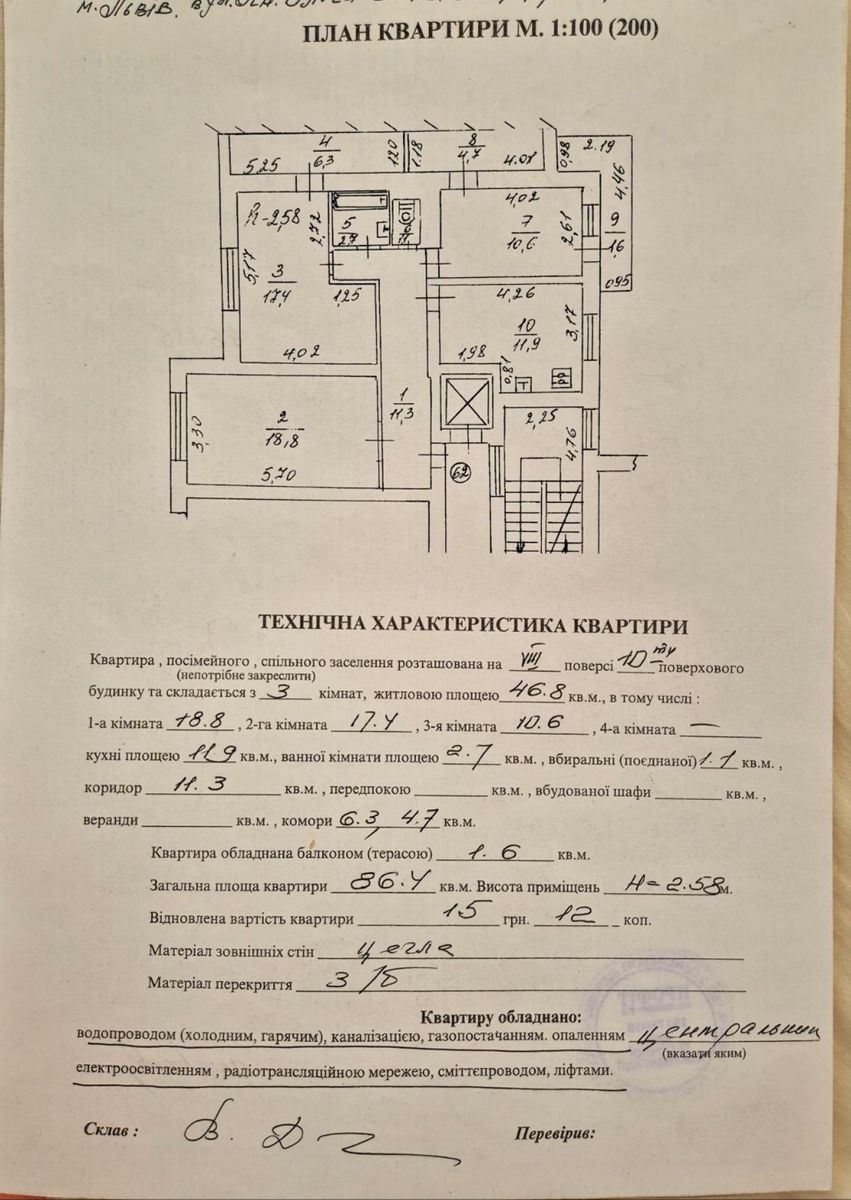 м. Львів. вул.
ПЛАН КВАРТИРИ М. 1:100 (200)
4
6,3
5.25
120
1.18
8
4.7
4.01
0,98
2.19
4,46
9
1,6
0,95
h-2,58
2,72
5
2.7
6
1.1
4,02
7
10,6
2,61
5,17
3
17,4
1,25
4,02
4,26
10
11,9
3,17
1,98
0,81
Т
2,25
4,76
1
11,3
2
18,8
3,30
5,70
62
ТЕХНІЧНА ХАРАКТЕРИСТИКА КВАРТИРИ
Квартира , посімейного , спільного заселення розташована на VIII поверсі 10-ти поверхового
(непотрібне закреслити)
будинку та складається з 3 кімнат, житловою площею 46.8 кв.м., в тому числі :
1-а кімната 18.8 , 2-га кімната 17.4 , 3-я кімната 10.6 , 4-а кімната —
кухні площею 11.9 кв.м., ванної кімнати площею 2.7 кв.м. , вбиральні (поєднаної) 1.1 кв.м. ,
коридор 11.3 кв.м. , передпокою ______ кв.м. , вбудованої шафи ______ кв.м. ,
веранди ______ кв.м. , комори 6.3, 4.7 кв.м.
Квартира обладнана балконом (терасою) 1.6 кв.м.
Загальна площа квартири 86.4 кв.м. Висота приміщень Н= 2.58 м.
Відновлена вартість квартири 15 грн. 12 коп.
Матеріал зовнішніх стін цегла
Матеріал перекриття З/б
Квартиру обладнано:
водопроводом (холодним, гарячим), каналізацією, газопостачанням. опаленням центральним
(вказати яким)
електроосвітленням , радіотрансляційною мережею, сміттєпроводом, ліфтами.
Склав : Перевірив: